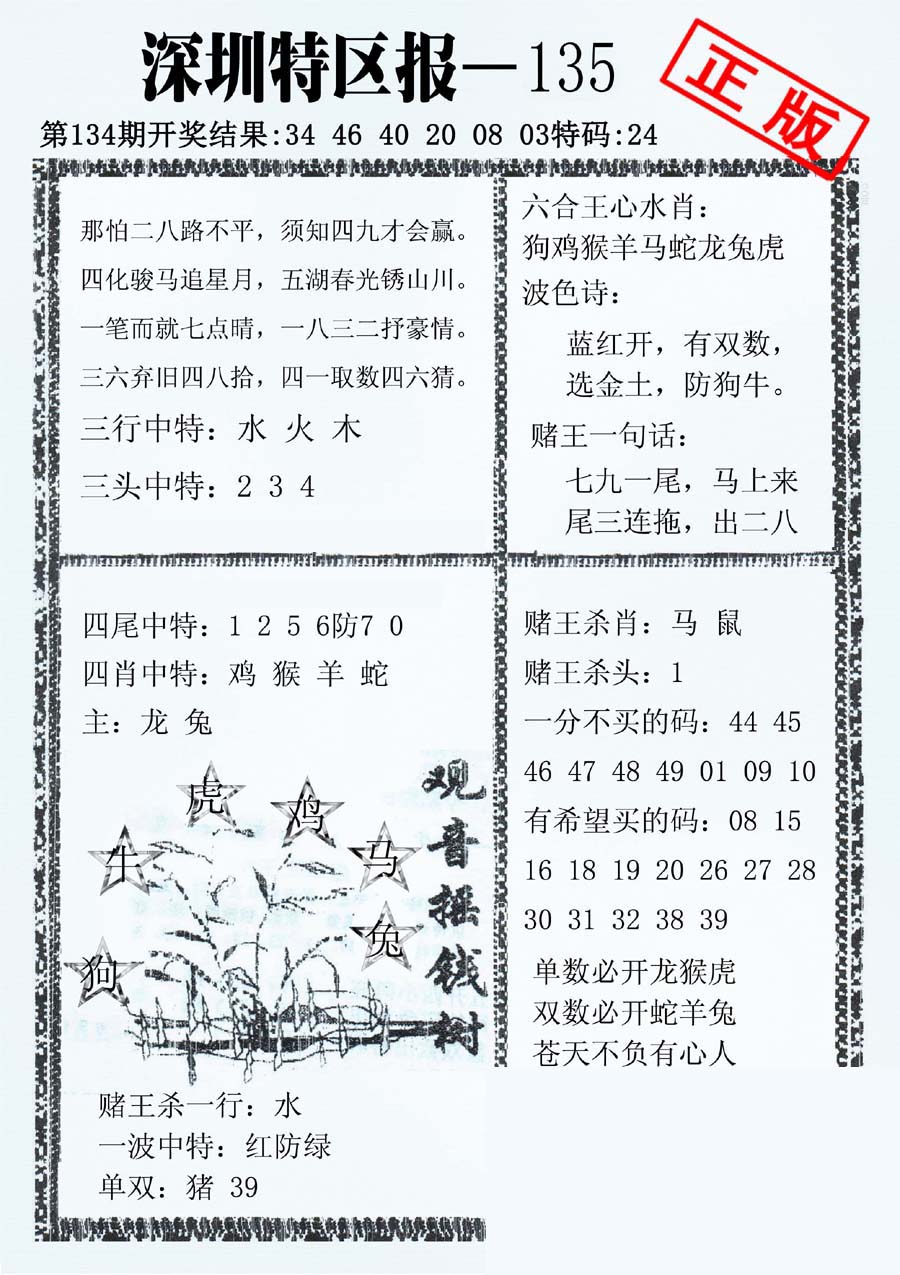 深圳特区报—135
正版
第134期开奖结果:34 46 40 20 08 03特码:24
那怕二八路不平，须知四九才会赢。
四化骏马追星月，五湖春光锈山川。
一笔而就七点晴，一八三二抒豪情。
三六弃旧四八拾，四一取数四六猜。
三行中特：水 火 木
三头中特：2 3 4
六合王心水肖：
狗鸡猴羊马蛇龙兔虎
波色诗：
蓝红开，有双数，
选金土，防狗牛。
赌王一句话：
七九一尾，马上来
尾三连拖，出二八
四尾中特：1 2 5 6防7 0
四肖中特：鸡 猴 羊 蛇
主：龙 兔
虎
鸡
牛
马
兔
狗
观音摇钱树
赌王杀一行：水
一波中特：红防绿
单双：猪 39
赌王杀肖：马 鼠
赌王杀头：1
一分不买的码：44 45
46 47 48 49 01 09 10
有希望买的码：08 15
16 18 19 20 26 27 28
30 31 32 38 39
单数必开龙猴虎
双数必开蛇羊兔
苍天不负有心人